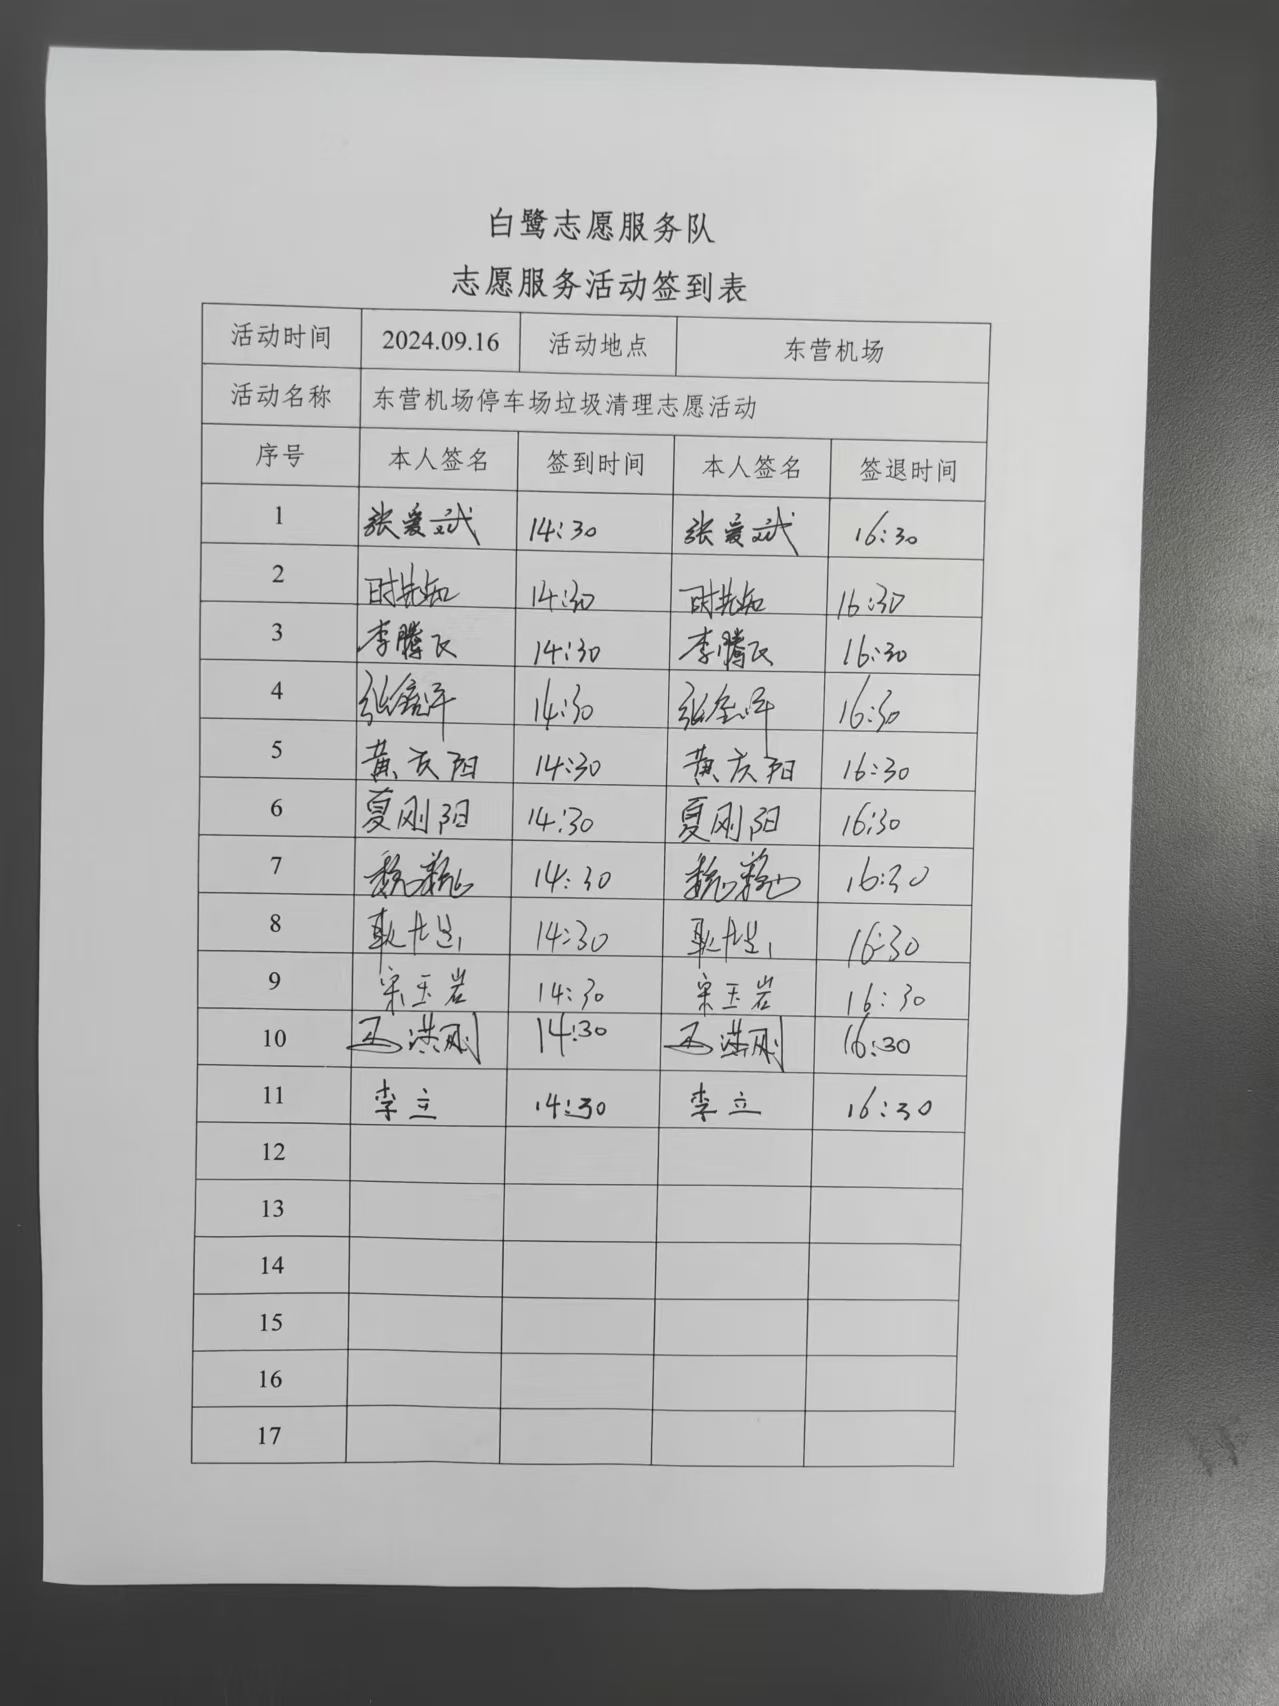 白鹭志愿服务队
志愿服务活动签到表
活动时间 2024.09.16 活动地点 东营机场
活动名称 东营机场停车场垃圾清理志愿活动
序号 本人签名 签到时间 本人签名 签退时间
1 张爱斌 14:30 张爱斌 16:30
2 时先知 14:30 时先知 16:30
3 李腾飞 14:30 李腾飞 16:30
4 14:30 16:30
5 黄庆阳 14:30 黄庆阳 16:30
6 夏刚阳 14:30 夏刚阳 16:30
7 14:30 16:30
8 14:30 16:30
9 宋玉岩 14:30 宋玉岩 16:30
10 14:30 16:30
11 李立 14:30 李立 16:30
12
13
14
15
16
17